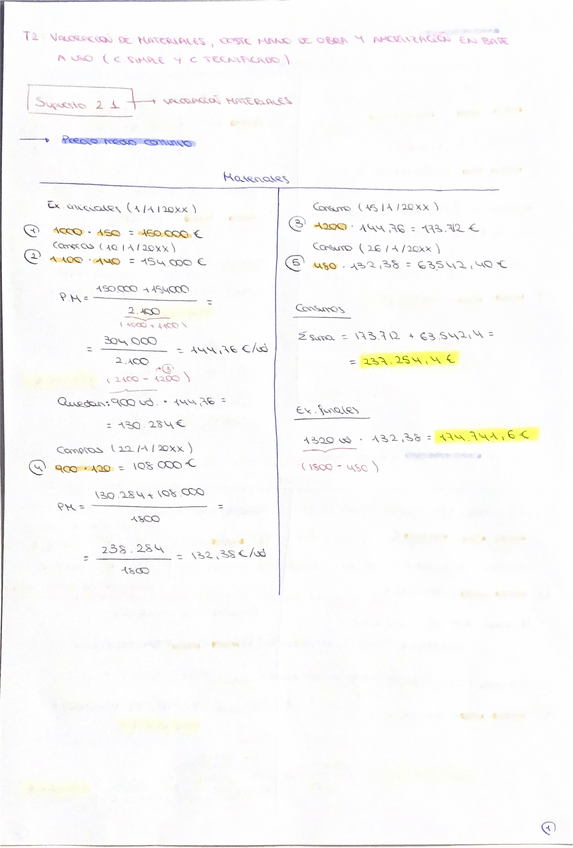 T2 VALORACIÓN DE MATERIALES, COSTE MANO DE OBRA Y AMORTIZACIÓN EN BASE
A USO (C SIMPLE Y C TECNIFICADO)
Supuesto 2 1 → VALORACIÓN MATERIALES
→ PRECIO MEDIO CONTINUO
Materiales
Ex. iniciales (1/1/20XX)
① 1000 · 150 = 150.000 €
Compras (10/1/20XX)
② 1100 · 140 = 154 000 €
PM = 150000 + 154000 =
2.100
(1000 + 1100)
= 304 000 = 144,76 €/ud
2.100
③
(2100 - 1200)
Quedan: 900 ud. · 144,76 =
= 130.284 €
Compras (22/1/20XX)
④ 900 · 120 = 108 000 €
PM = 130.284 + 108.000 =
1800
= 238.284 = 132,38 €/ud
1800
Consumo (15/1/20XX)
③ 1200 · 144,76 = 173.712 €
Consumo (26/1/20XX)
⑤ 480 · 132,38 = 63542,40 €
Consumos
Σ suma = 173.712 + 63.542,4 =
= 237.254,4 €
Ex. finales
1320 ud · 132,38 = 174.741,6 €
(1800 - 480)
①